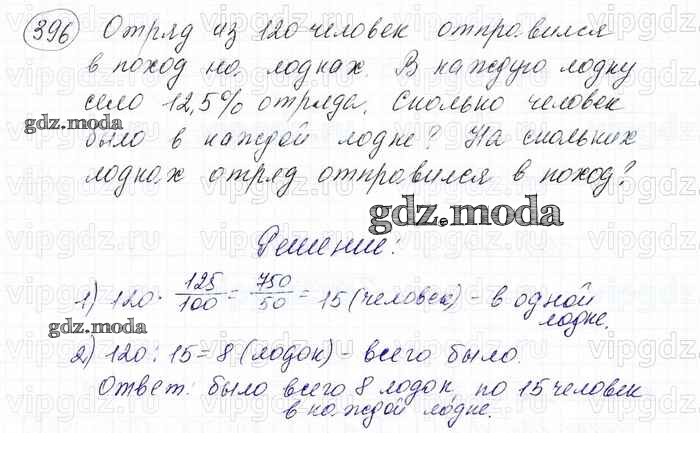 396 Отряд из 120 человек отправился
в поход на лодках. В каждую лодку
село 12,5% отряда. Сколько человек
gdz.moda
было в каждой лодке? На скольких
лодках отряд отправился в поход?
gdz.moda
Решение:
1) 120 · 125/100 = 750/50 = 15 (человек) - в одной
лодке.
gdz.moda
2) 120 : 15 = 8 (лодок) - всего было.
Ответ: было всего 8 лодок, по 15 человек
в каждой лодке.